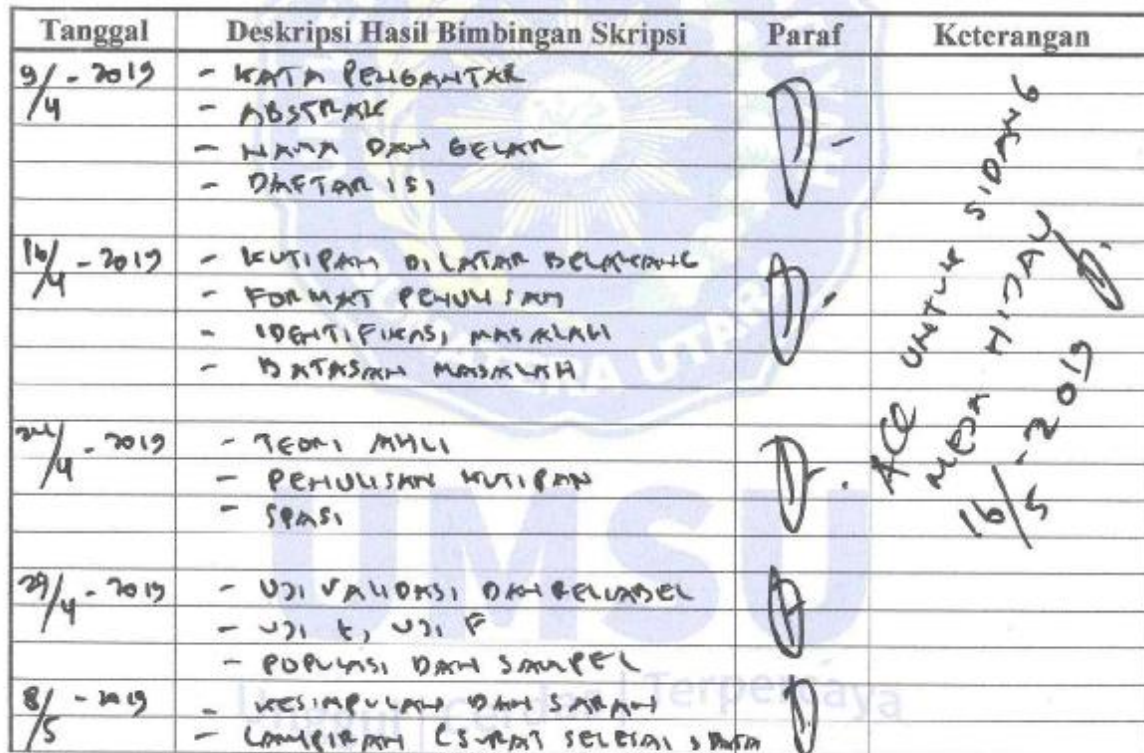 Tanggal Deskripsi Hasil Bimbingan Skripsi Paraf Keterangan
9/4 - 2019 - KATA PENGANTAR
- ABSTRAK
- NAMA DAN GELAR
- DAFTAR ISI
16/4 - 2019 - KUTIPAN DI LATAR BELAKANG
- FORMAT PENULISAN
- IDENTIFIKASI MASALAH
- BATASAN MASALAH
24/4 - 2019 - TEORI AHLI
- PENULISAN KUTIPAN
- SPASI
29/4 - 2019 - UJI VALIDASI DAN RELIABEL
- UJI t, UJI F
- POPULASI DAN SAMPEL
8/5 - 2019 - KESIMPULAN DAN SARAN
- LAMPIRAN (SURAT SELESAI
ACC UNTUK SIDANG
MEJA HIJAU
16/5 - 2019
UMSU
Unggul | Cerdas | Terpercaya